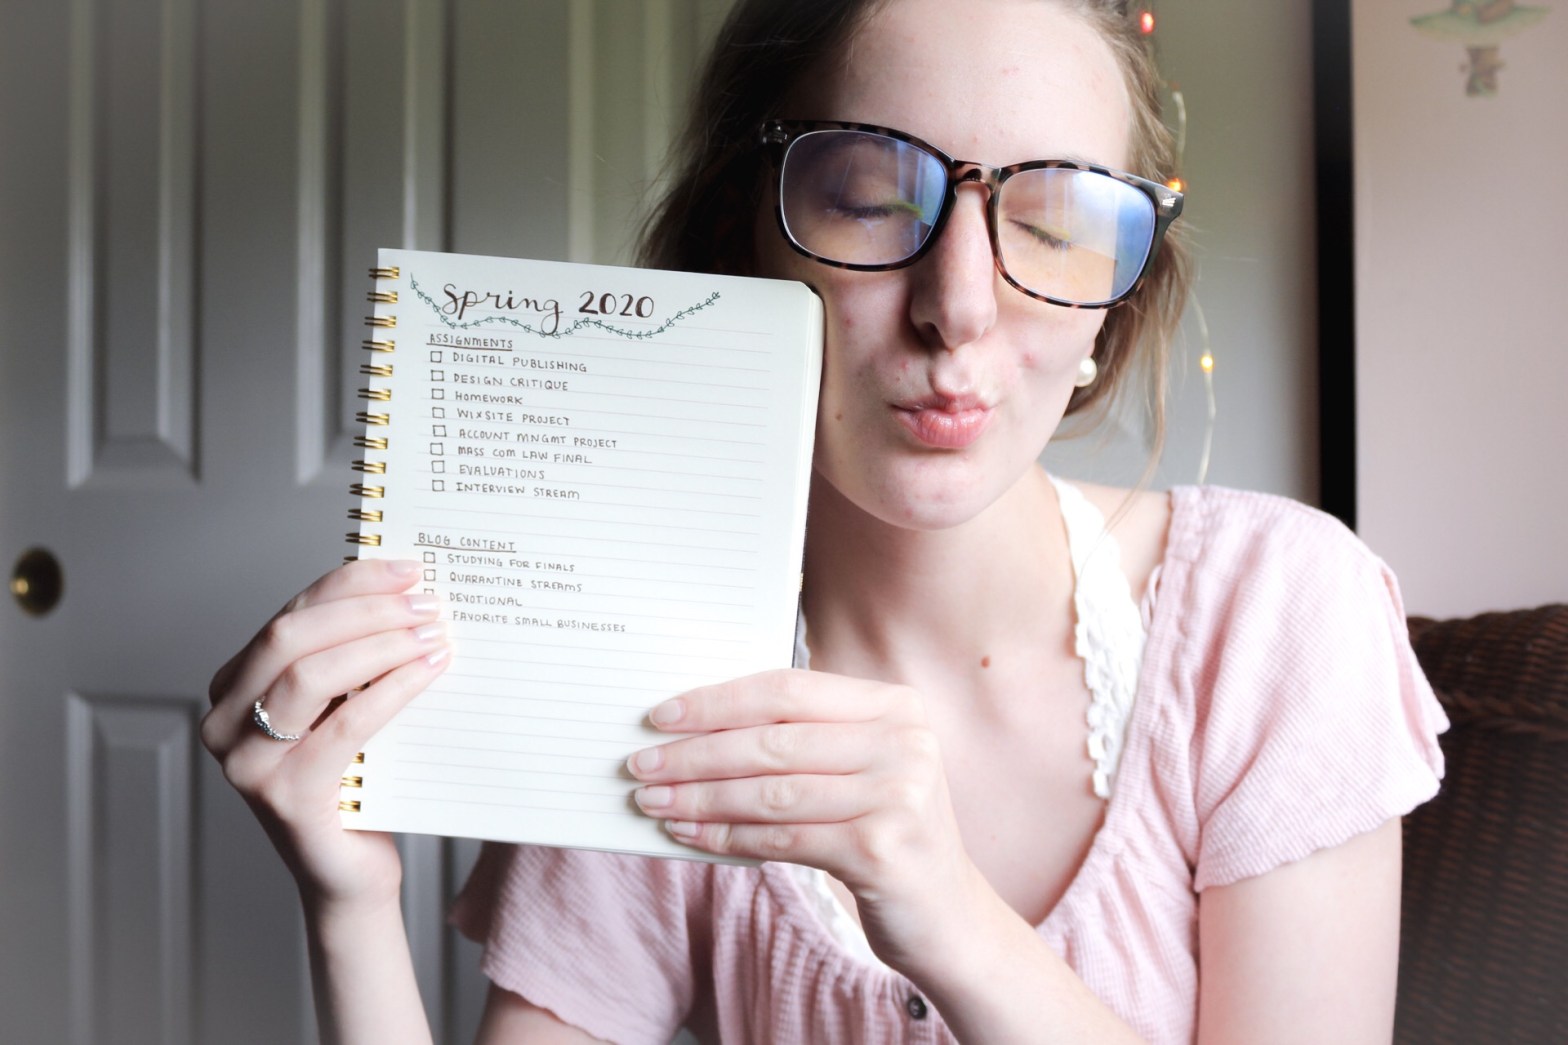 Spring 2020
ASSIGNMENTS
DIGITAL PUBLISHING
DESIGN CRITIQUE
HOMEWORK
WIXSITE PROJECT
ACCOUNT MNGMT PROJECT
MASS COM LAW FINAL
EVALUATIONS
INTERVIEW STREAM
BLOG CONTENT
STUDYING FOR FINALS
QUARANTINE STREAMS
DEVOTIONAL
FAVORITE SMALL BUSINESSES